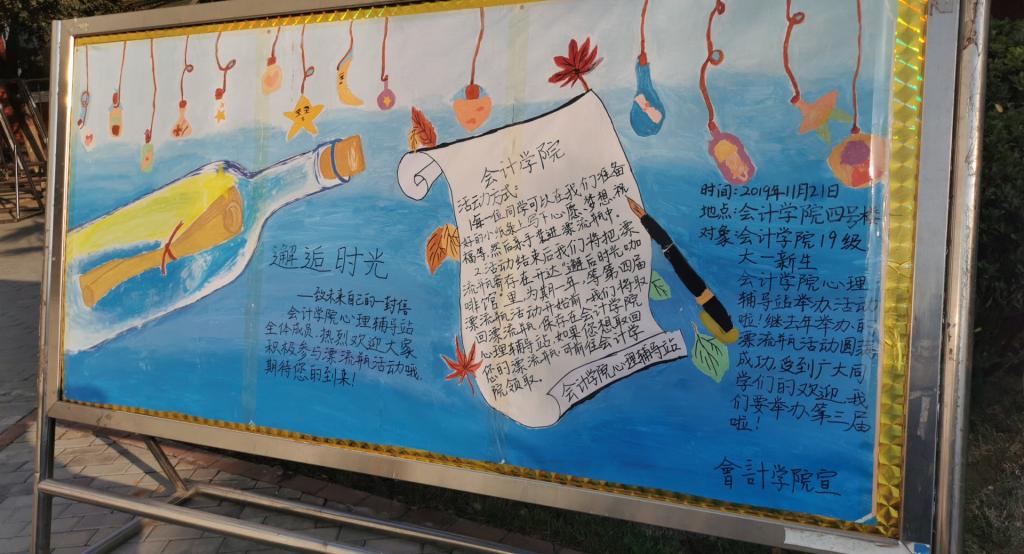 邂逅时光
——致未来自己的一封信
会计学院心理辅导站
全体成员,热烈欢迎大家
积极参与漂流瓶活动哦.
期待您的到来!
会计学院
活动方式:
1.每一位同学可以在我们准备
好的小纸条上写下心愿、梦想、祝
福等,然后亲手装进漂流瓶中.
2.活动结束后我们将把漂
流瓶寄存在开达“邂逅时光”咖
啡馆”里,为期一年,等第四届
漂流瓶活动开始前,我们将取
回漂流瓶,保存在会计学院
心理辅导站,如果您想取回
您的漂流瓶,可前往会计学
院领取.
会计学院心理辅导站
时间:2019年11月21日
地点:会计学院四号楼
对象:会计学院19级
大一新生
会计学院心理
辅导站举办活动
啦!继去年举办的
漂流瓶活动圆满
成功,受到广大同
学们的欢迎,我
们要举办第三届
啦!
會計学院宣